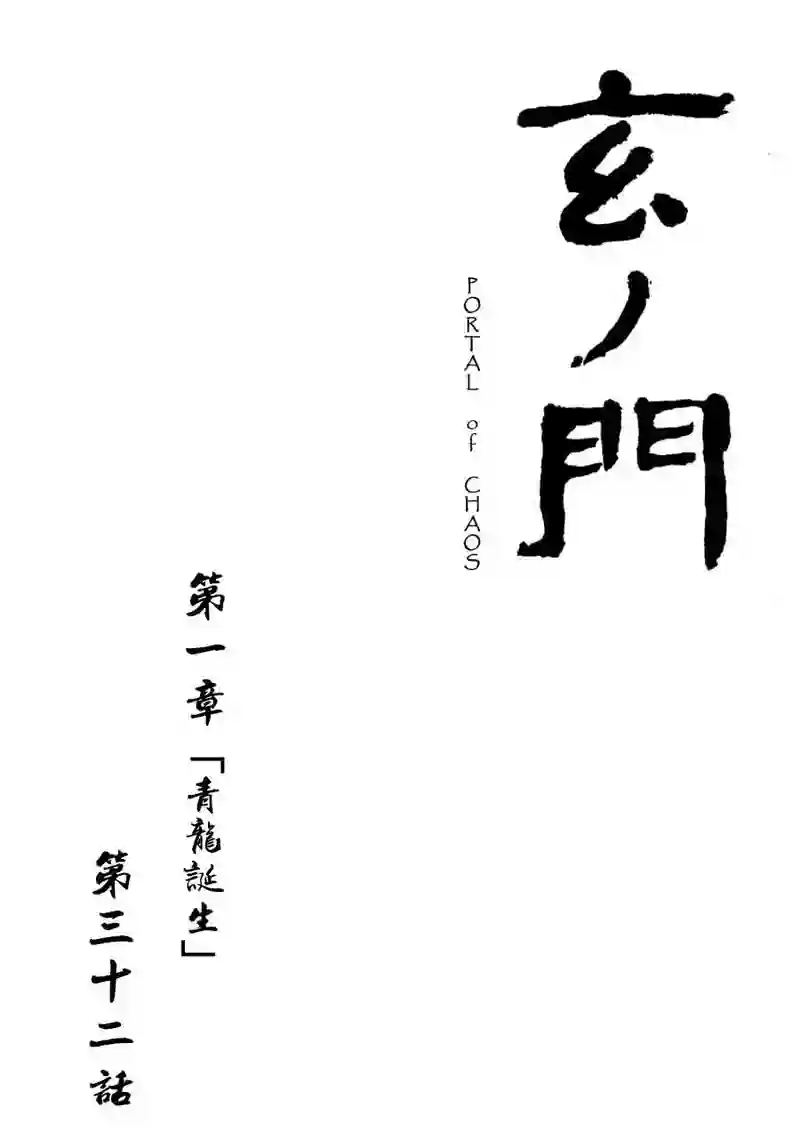 玄ノ門
PORTAL of CHAOS
第一章「青龍誕生」
第三十二話